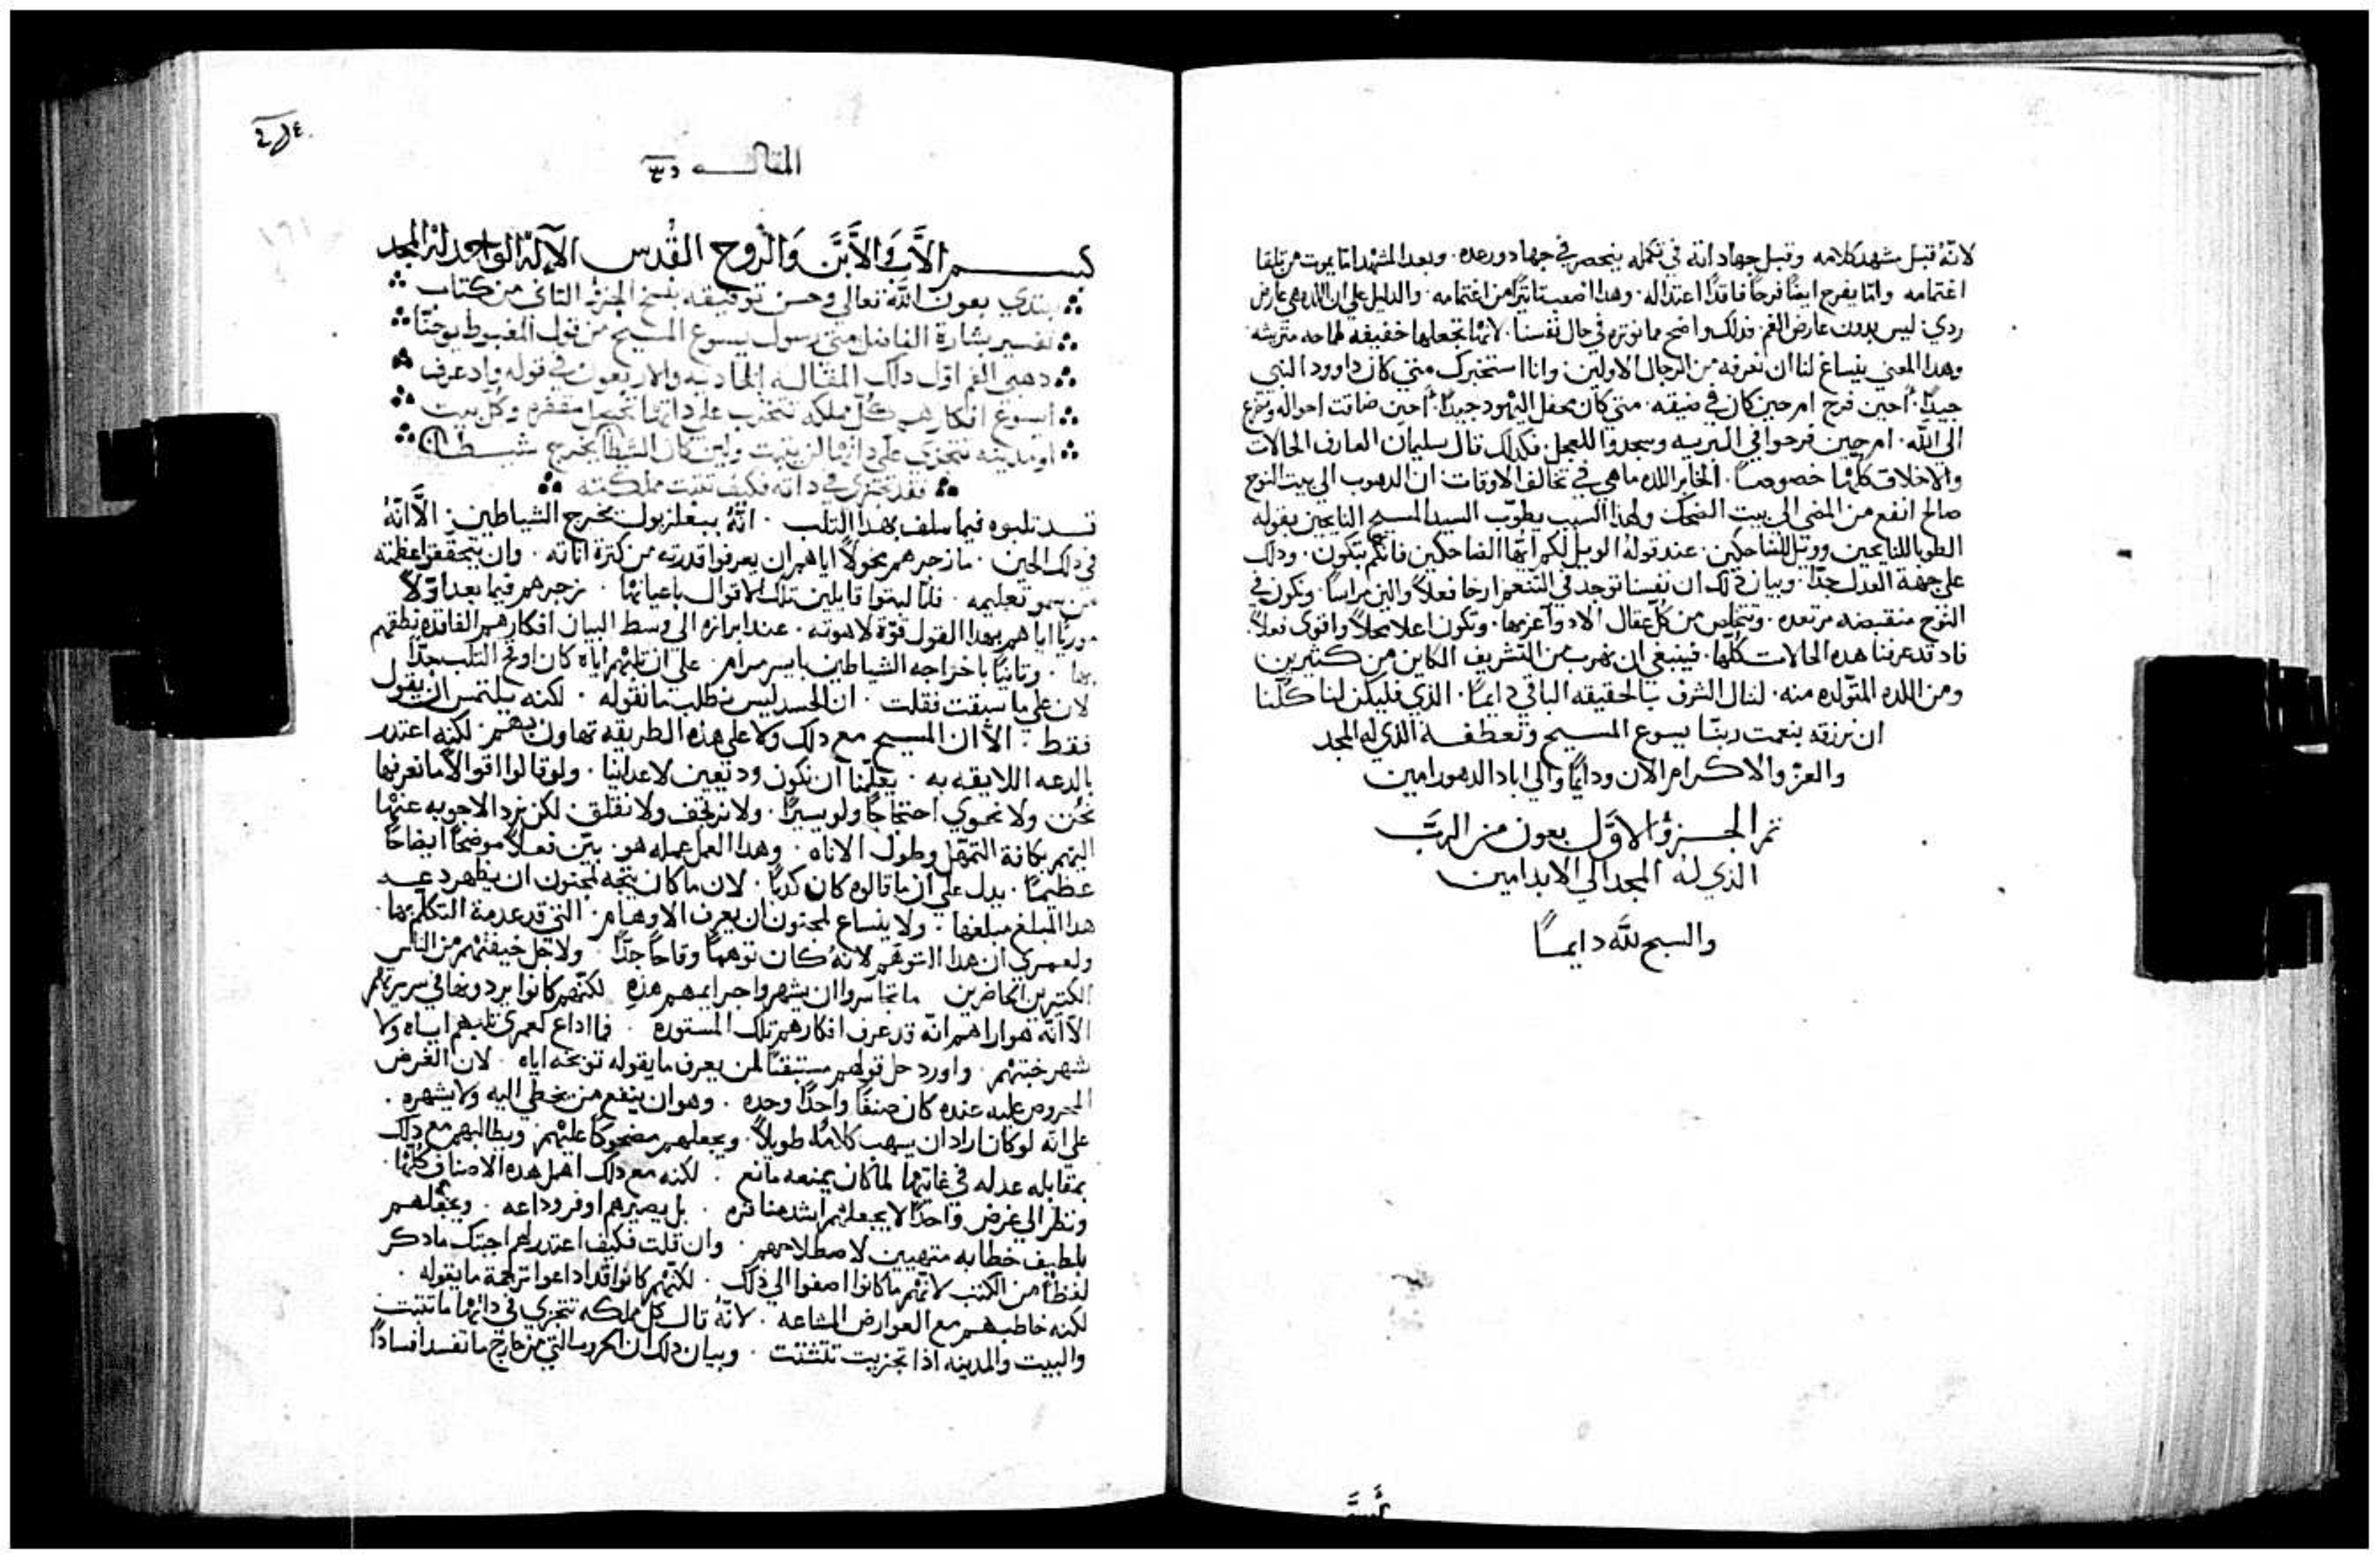 لانّهُ قبل مشهد كلامه وقبل جهاد انه في تكمله ينحصر في جهاد ورعده. وبعد المشهد امّا يموت من تلقا
اغتمامه وامّا يفرح ايضًا فرحًا فاقدًا اعتداله. وهذا اصعب تاثيرًا من اغتمامه. والدليل علي ان اللده هي عارض
ردي. ليس بدون عارض الغم. فدلك واضح مما نوثره في حال نفسنا. لانها تجعلها خفيفه طماحه متريشه
وهدا المعني ينساغ لنا ان نعرفه من الرجال الاولين. وانا استخبرك متي كان داوود النبي
جيدًا. أحين فرح ام حين كان في ضيقه. متي كان محفل اليهود جيدًا. أحين ضاقت احواله وتضرع
الي الله. ام حين فرحوا في البريه وسجدوا للعجل. فكدلك قال سليمان العارف الحالات
والاخلاق كلها خصوصًا. الخابر اللده ما هي في تخالف الاوقات. ان الدهوب الي بيت النوح
صالح انفع من المضي الي بيت الضحك. ولهذا السبب يطوّب السيد المسيح النايحين بقوله
الطوبا للنايحين وويل للضاحكين. عند قوله الويل لكم ايها الضاحكين فانكم تبكون. ودلك
علي جهة العدل جدًا. وبيان دلك ان نفسنا توجد في التنعم ارخا فعلاً والين مراسًا. وتكون في
النوح منقبضه مرتعده. وتتخلص من كل عقال الاد واعزمها. وتكون اعلا محلاً واقوي فعلاً.
فاد قد عرفنا هده الحالات كلها. فينبغي ان نهرب من التشريف الكاين من كثيرين
ومن اللده المتولده منه. لننال الشرف بالحقيقه الباقي دايمًا. الذي فليكن لنا كلنا
ان نرزقه بنعمت ربنا يسوع المسيح وتعطفه الذي له المجد
والعز والاكرام الان ودايمًا والي اباد الدهور امين
تم الجزؤ الاوّل بعون من الربّ
الذي له المجد الي الابد امين
والسبح لله دايمًا
المقاله
بسم الاَّب وَالاَّبن وَالرُوح القُدس الآله الواحد له المجد
نبتدي بعون الله تعالي وحسن توفيقه بنسخ الجزؤ التاني من كتاب
تفسير بشارة الفاضل متي رسول يسوع المسيح من قول المغبوط يوحنّا
دهبي الفم اوّل دلك المقاله الحاديه والاربعون في قوله واد عرف
ايسوع افكارهم كل مملكه تتحزب علي داتها تحصل مقفره وكل بيت
او مدينه تتجزي علي داتها لن يثبت ولين كان الشيطان يخرج شيطان
فقد تجزي في داته فكيف تثبت مملكته
قد تلبوه فيما سلف بهدا الثلب. انّهُ ببعلزبول يخرج الشياطين. الاَّ انّهُ
في دلك الحين. ما زجرهم مخولاً اياهم ان يعرفوا قدرته من كثرة اياته. وان يتحققوا عظمته
من سمو تعليمه. فلمّا لبتوا قايلين تلك الاقوال باعيانها. زجرهم فيما بعد اوّلاً
موريًا اياهم بهدا القول قوّة لاهوته. عند ابرازه الي وسط البيان افكارهم الفاقده نطقهم
بها. وتانيًا باخراجه الشياطين بايسر مرام. علي ان ثلبهم اياه كان اوقح الثلب جدًّا
لان علي ما سبقت فقلت. ان الحسد ليس يطلب ما نقوله. لكنه يلتمس ان يقول
فقط. الاَّ ان المسيح مع دلك ولا علي هذه الطريقه تهاون بهم. لكنه اعتدر
بالدعه اللايقه به. يعلّمنا ان نكون وديعين لاعداينا. ولو قالوا اقوالاً ما نعرفها
نحن ولا نحوي احتجاجًا ولو يسيرًا. ولا نرتجف ولا نقلق. لكن نرد الاجوبه عنها
اليهم بكافة التمهّل وطول الاناه. وهدا العمل عمله هو. بيّن فعلاً موضحًا ايضاحًا
عظيمًا. يدل علي ان ما قالوه كان كدبًا. لان ما كان يتجه لمجنون ان يظهر دعه
هدا المبلغ مبلغها. ولا ينساغ لمجنون ان يعرف الاوهام. التي قد عدمة التكلّم بها.
ولعمري ان هدا التوهّم لانهُ كان توهمًا وقاحًا جدًّا. ولاجل خيفتهم من الناس
الكثيرين الحاضرين ما تجاسروا ان يشهروا جرايمهم هذه لكنّهم كانوا يرددونها في سريرتهم
الاَّ انّه هو اراهم انّه قد عرف افكارهم تلك المستوره. فما اداع لعمري ثلبهم اياه ولا
شهر خبتهم. واورد حل قولهم مستبقيًا لمن يعرف ما يقوله توبيخه اياه. لان الغرض
المحروص عليه عنده كان صنفًا واحدًا وحده. وهو ان ينفع من يخطي اليه ولا يشهره.
علي انّه لو كان اراد ان يسهب كلامًا طويلاً. ويجعلهم مضحوكًا عليهم. ويطالبهم مع دلك
بمقابله عدله في غايتها لما كان يمنعه مانع. لكنه مع دلك اهمل هده الاصناف كلها.
ونظر الي غرض واحد لا يجعلهم اشد منافره. بل يصيرهم اوفر وداعه. ويجعلهم
بلطيف خطابه متهيين لاصطلاحهم. وان قلت فكيف اعتدر لهم اجبتك ما دكر
لفظًا من الكتب لانهم ما كانوا اصغوا الي ذلك. لكنهم كانوا قد اداعوا ترجمة ما يقوله.
لكنه خاطبهم مع العوارض المشاعه. لانّهُ قال كل مملكه تتجزي في داتها ما تتبت
والبيت والمدينه اذا تجزيت تتشتت. وبيان دلك ان الحروب التي من خارج ما تفسد افسادًا